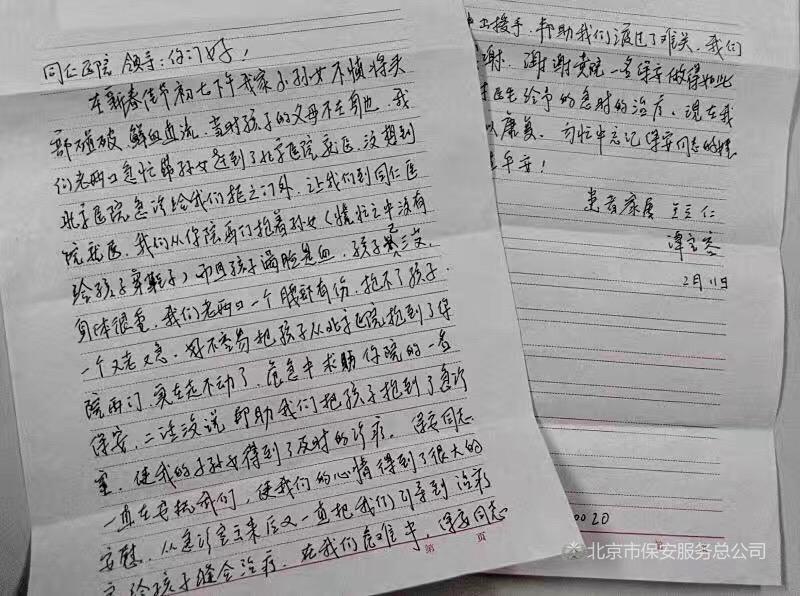 同仁医院领导：你们好！
在新春佳节初七下午我家小孙女不慎将头
部碰破，鲜血直流，当时孩子的父母不在身边，我
们老两口急忙将孙女送到了北京医院就医，没想到
北京医院急诊给我们拒之门外，让我们到同仁医
院就医，我们从你院西门抱着孙女（慌忙之中没有
给孩子穿鞋子）而且孩子满脸是血，孩子已
身体很重，我们老两口一个腰部有伤，抱不了孩子，
一个又老又急，好不容易把孩子从北京医院抱到了你
院西门，实在走不动了，危急中求助你院的一名
保安，二话没说帮助我们把孩子抱到了急诊
室，使我的孙女得到了及时的诊疗。保安同志
一直在安抚我们，使我们的心情得到了很大的
安慰，从急诊室出来后又一直把我们引导到治疗
室给孩子缝合治疗，在我们危难中，保安同志
第 页
援手，帮助我们渡过了难关，我们
谢，谢谢贵院一名保安做得如此
医生给予的急时的治疗，现在我
以康复，匆忙中忘记保安同志的姓
平安！
患者家属 王仁
谭
2月11日
0020
北京市保安服务总公司